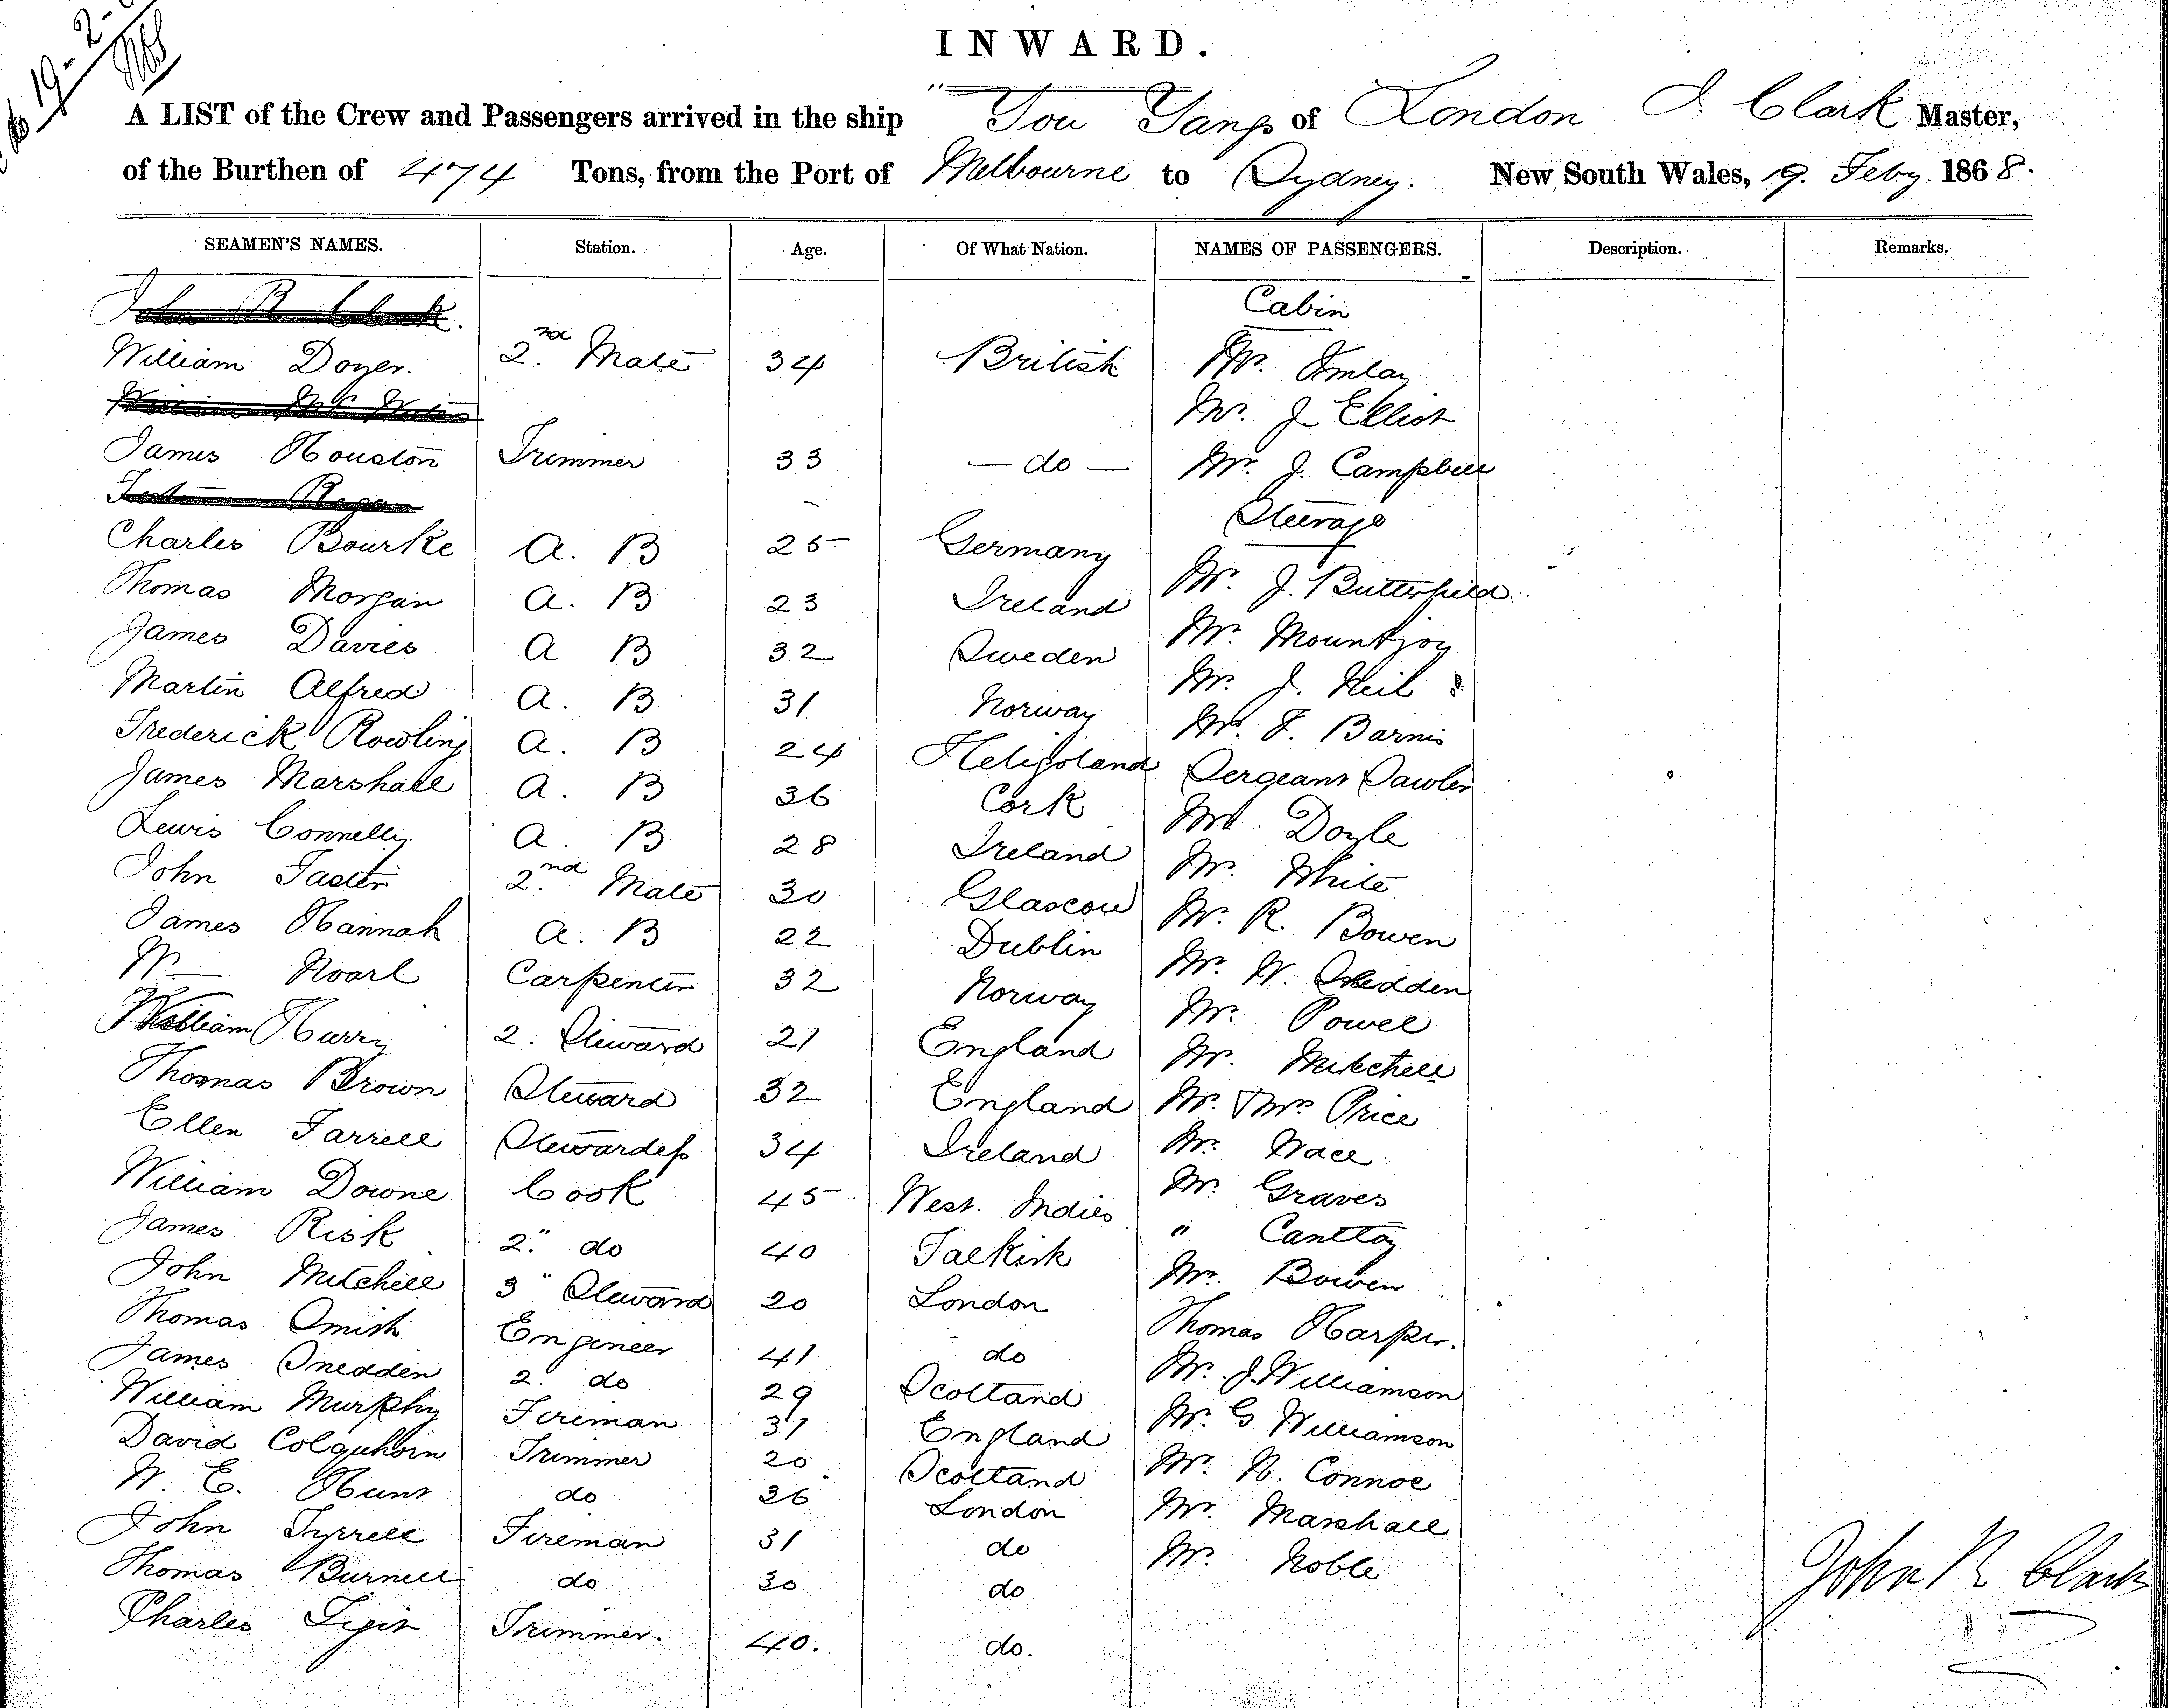 19-2-
INWARD.
A LIST of the Crew and Passengers arrived in the ship You Yangs of London J. Clark Master,
of the Burthen of 474 Tons, from the Port of Melbourne to Sydney. New South Wales, 19. Feby 1868.
SEAMEN'S NAMES. Station. Age. Of What Nation. NAMES OF PASSENGERS. Description. Remarks.
John R Clark. Cabin
William Doyer. 2nd Mate 34 British Mr. Imlay
Mr. J Elliot
James Houston Trimmer 33 — do — Mr. J. Campbell
Steerage
Charles Bourke A. B 25 Germany
Thomas Morgan A. B 23 Ireland Mr. J. Butterfield
James Davies A B 32 Sweden Mr. Mountjoy
Martin Alfred A. B 31 Norway Mr. J. Neil
Frederick Rowling A. B 24 Heligoland Mr. F. Barnis
James Marshall A. B 36 Cork Sergeant Sawler
Lewis Connelly A. B 28 Ireland Mr. Doyle
John 2nd Mate 30 Glascow Mr. White
James Hannah A. B 22 Dublin Mr. R. Bowen
W Noarl Carpenter 32 Norway Mr. W. Snedden
William Harry 2. Steward 21 England Mr. Powel
Thomas Brown Steward 32 England Mr. Mitchell
Ellen Farrell Stewardess 34 Ireland Mr. & Mrs Price
William Downe Cook 45 West. Indies Mr. Wall
James Risk 2." do 40 Falkirk Mr. Graves
John Mitchell 3" Steward 20 London "
Thomas Smith Engineer 41 do Mr. Bowen
James Snedden 2. do 29 Scotland Thomas Harper.
William Murphy Fireman 37 England Mr. J. Williamson
David Colquhorn Trimmer 20 Scotland Mr. G Williamson
W. E. Hunt do 36 London Mr. N. Connoe
John Tyrrell Fireman 31 do Mr. Marshall
Thomas Burnell do 30 do Mr. Noble
Charles Trimmer. 40. do.
John R Clark